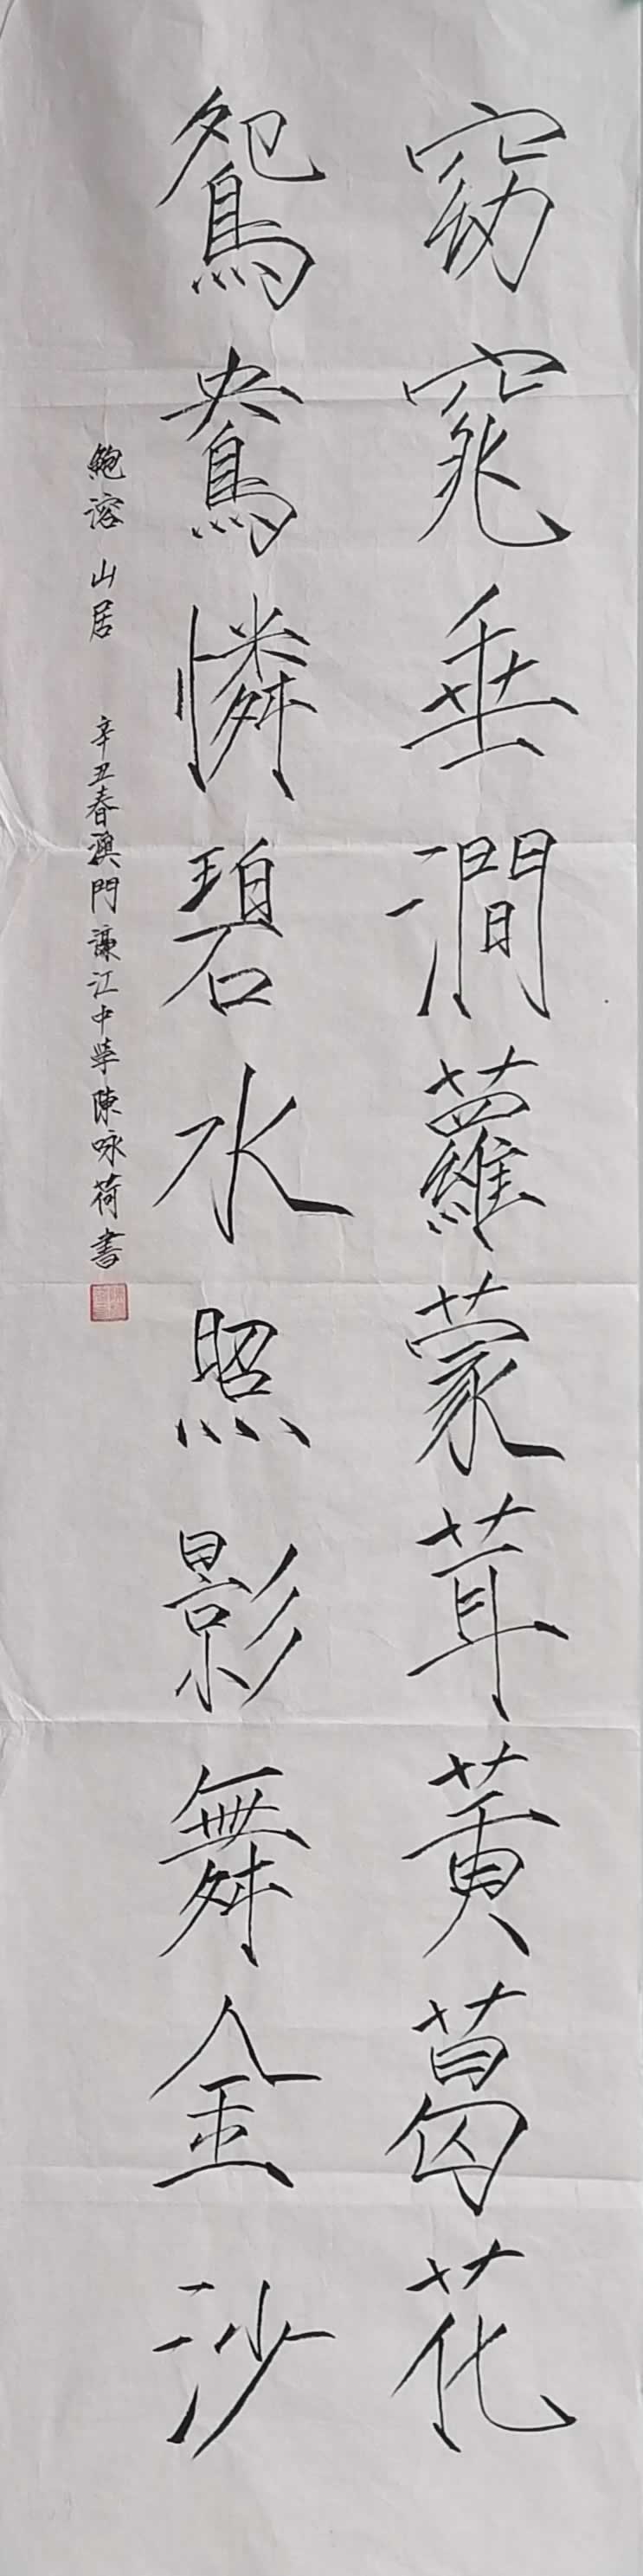 窈窕垂澗蘿蒙茸黄葛花
鴛鴦憐碧水照影舞金沙
鮑溶 山居 辛丑春澳門濠江中學陳咏荷書